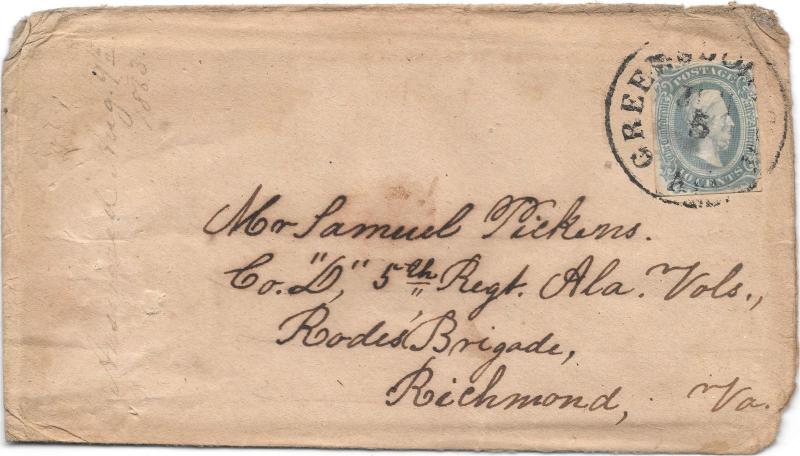 Mr Samuel Pickens.
Co. "D," 5th Regt. Ala. Vols.,
Rodes' Brigade,
Richmond, Va.
GREENSBORO
5
POSTAGE
CENTS
Aug. 4th
1863.